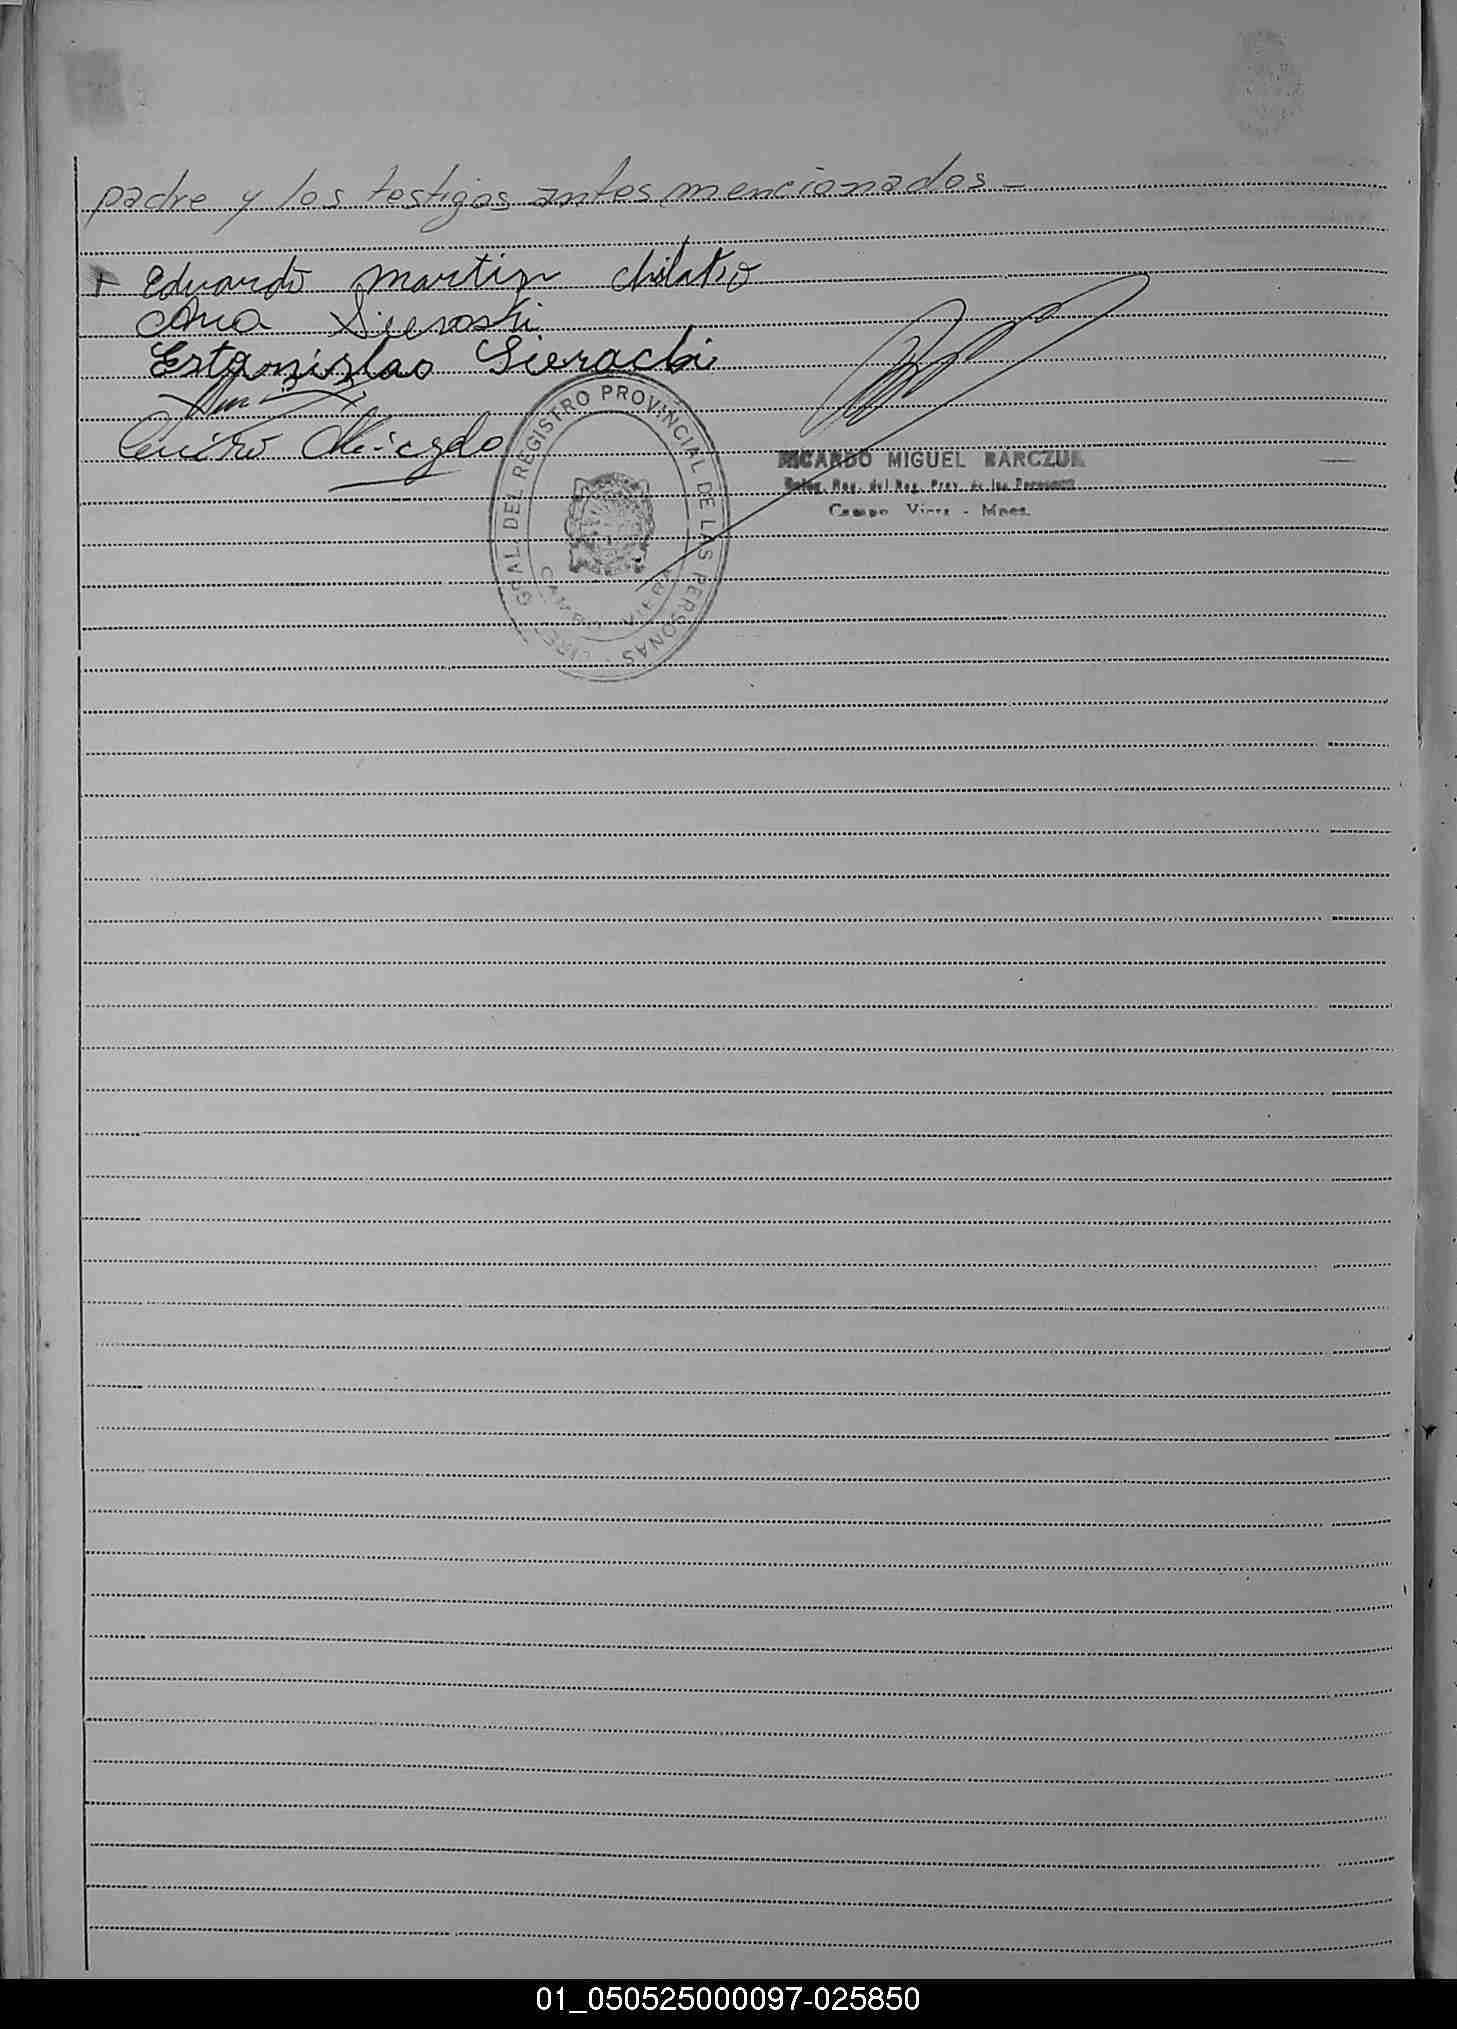 padre y los testigos antes mencionados -
Eduardo Martin
Ana Sieroski
Estanizlao Sierachi
GRAL. DEL REGISTRO PROVINCIAL DE LAS PERSONAS
RICARDO MIGUEL BARCZUK
Deleg. Reg. del Reg. Prov. de las Personas
Campo Viera - Mnes.
01_050525000097-025850